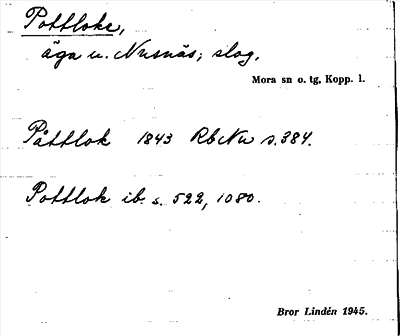 Pottloke,
äga u. Nusnäs; slog.
Mora sn o. tg, Kopp. l.
Påttlok 1843 RbNu s. 384.
Pottlok ib. s. 522, 1080.
Bror Lindén 1945.